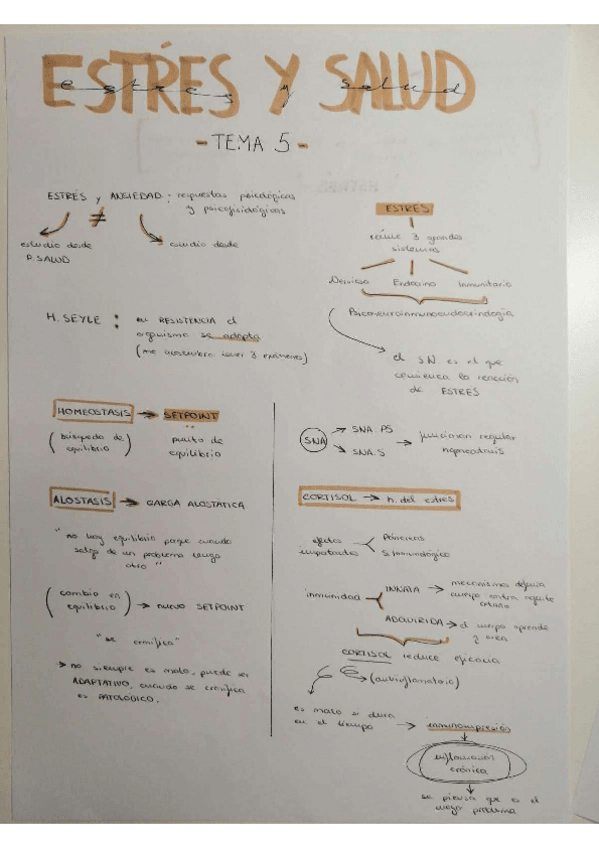 ESTRÉS Y SALUD
estres y salud
- TEMA 5 -
ESTRÉS y ANSIEDAD : respuestas psicológicas
y psicofisiológicas
≠
estudio desde
P. SALUD
estudio desde
ESTRÉS
reúne 3 grandes
sistemas
Nervioso Endocrino Inmunitario
Psiconeuroinmunoendocrinología
el SN es el que
comienza la reacción
de ESTRÉS
H. SEYLE : en RESISTENCIA el
organismo se adapta
(me acostumbro tener 3 exámenes)
HOMEOSTASIS → SETPOINT
(búsqueda de
equilibrio)
punto de
equilibrio
SNA
SNA. PS
SNA. S
→ funcionan regular
ALOSTASIS → CARGA ALOSTÁTICA
" no hay equilibrio porque cuando
salgo de un problema tengo
otro "
(cambio en
equilibrio) → nuevo SETPOINT
" se cronifica "
→ no siempre es malo, puede ser
ADAPTATIVO, cuando se cronifica
es PATOLÓGICO.
CORTISOL → h. del estrés
efectos
importantes
Páncreas
S. Inmunológico
inmunidad
INNATA → mecanismos
cuerpo contra agente
ADQUIRIDA → el cuerpo aprende
y crea
CORTISOL reduce eficacia
(antiinflamatorio)
es malo si dura
en el tiempo → inmunosupresión
inflamación
crónica
se piensa que es el
mayor problema